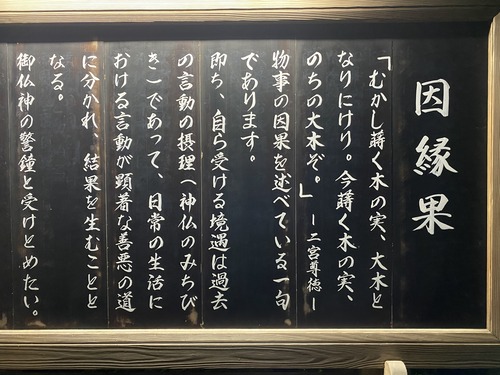 因縁果
「むかし蒔く木の実、大木と
なりにけり。今蒔く木の実、
のちの大木ぞ。」 ー二宮尊徳ー
物事の因果を述べている一句
であります。
即ち、自ら受ける境遇は過去
の言動の摂理(神仏のみちび
き)であって、日常の生活に
おける言動が顕著な善悪の道
に分かれ、結果を生むことと
なる。
御仏神の警鐘と受けとめたい。